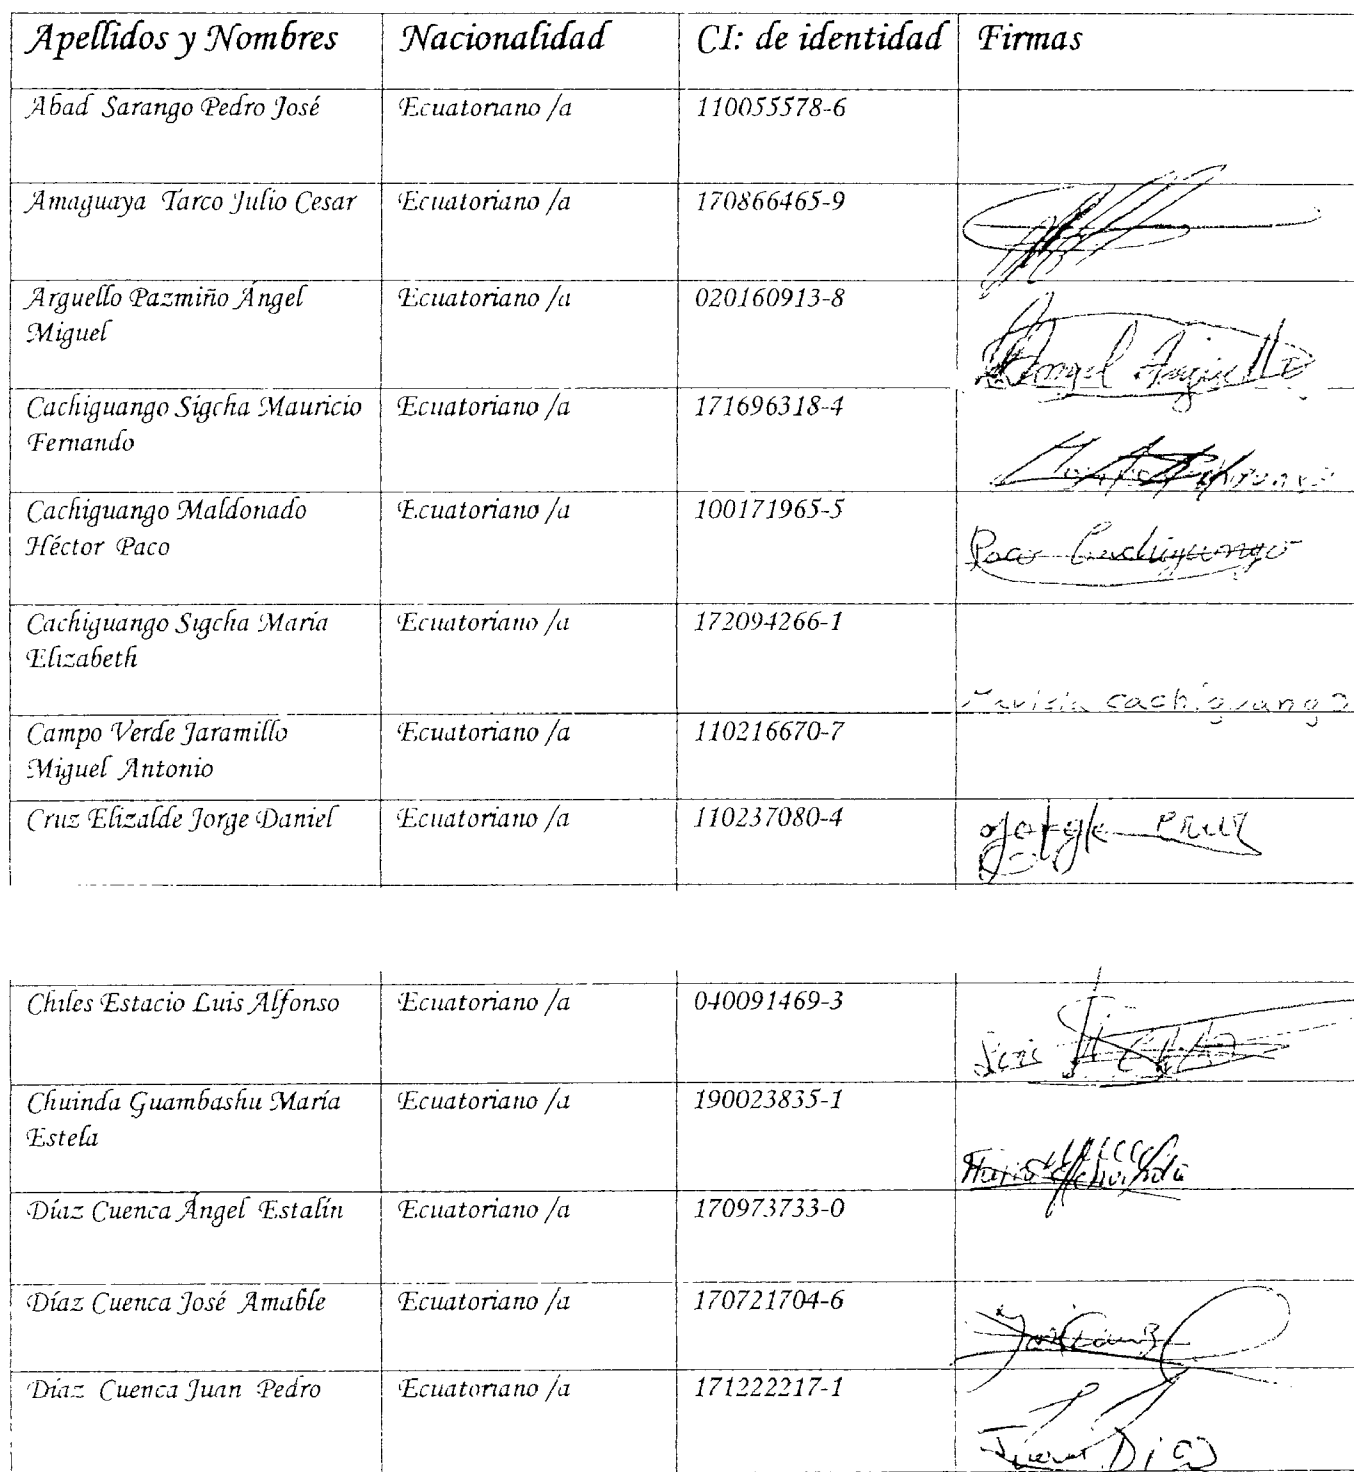 Apellidos y Nombres Nacionalidad CI: de identidad Firmas
Abad Sarango Pedro José Ecuatoriano /a 110055578-6
Amaguaya Tarco Julio Cesar Ecuatoriano /a 170866465-9
Arguello Pazmiño Ángel Ecuatoriano /a 020160913-8
Miguel
Angel Arguello
Cachiguango Sigcha Mauricio Ecuatoriano /a 171696318-4
Fernando
Cachiguango Maldonado Ecuatoriano /a 100171965-5
Héctor Paco Paco Cachiguango
Cachiguango Sigcha María Ecuatoriano /a 172094266-1
Elizabeth
cachiguango
Campo Verde Jaramillo Ecuatoriano /a 110216670-7
Miguel Antonio
Cruz Elizalde Jorge Daniel Ecuatoriano /a 110237080-4
Chiles Estacio Luis Alfonso Ecuatoriano /a 040091469-3
Luis
Chuinda Guambashu María Ecuatoriano /a 190023835-1
Estela
Díaz Cuenca Ángel Estalín Ecuatoriano /a 170973733-0
Díaz Cuenca José Amable Ecuatoriano /a 170721704-6
Díaz Cuenca Juan Pedro Ecuatoriano /a 171222217-1
Juan Diaz